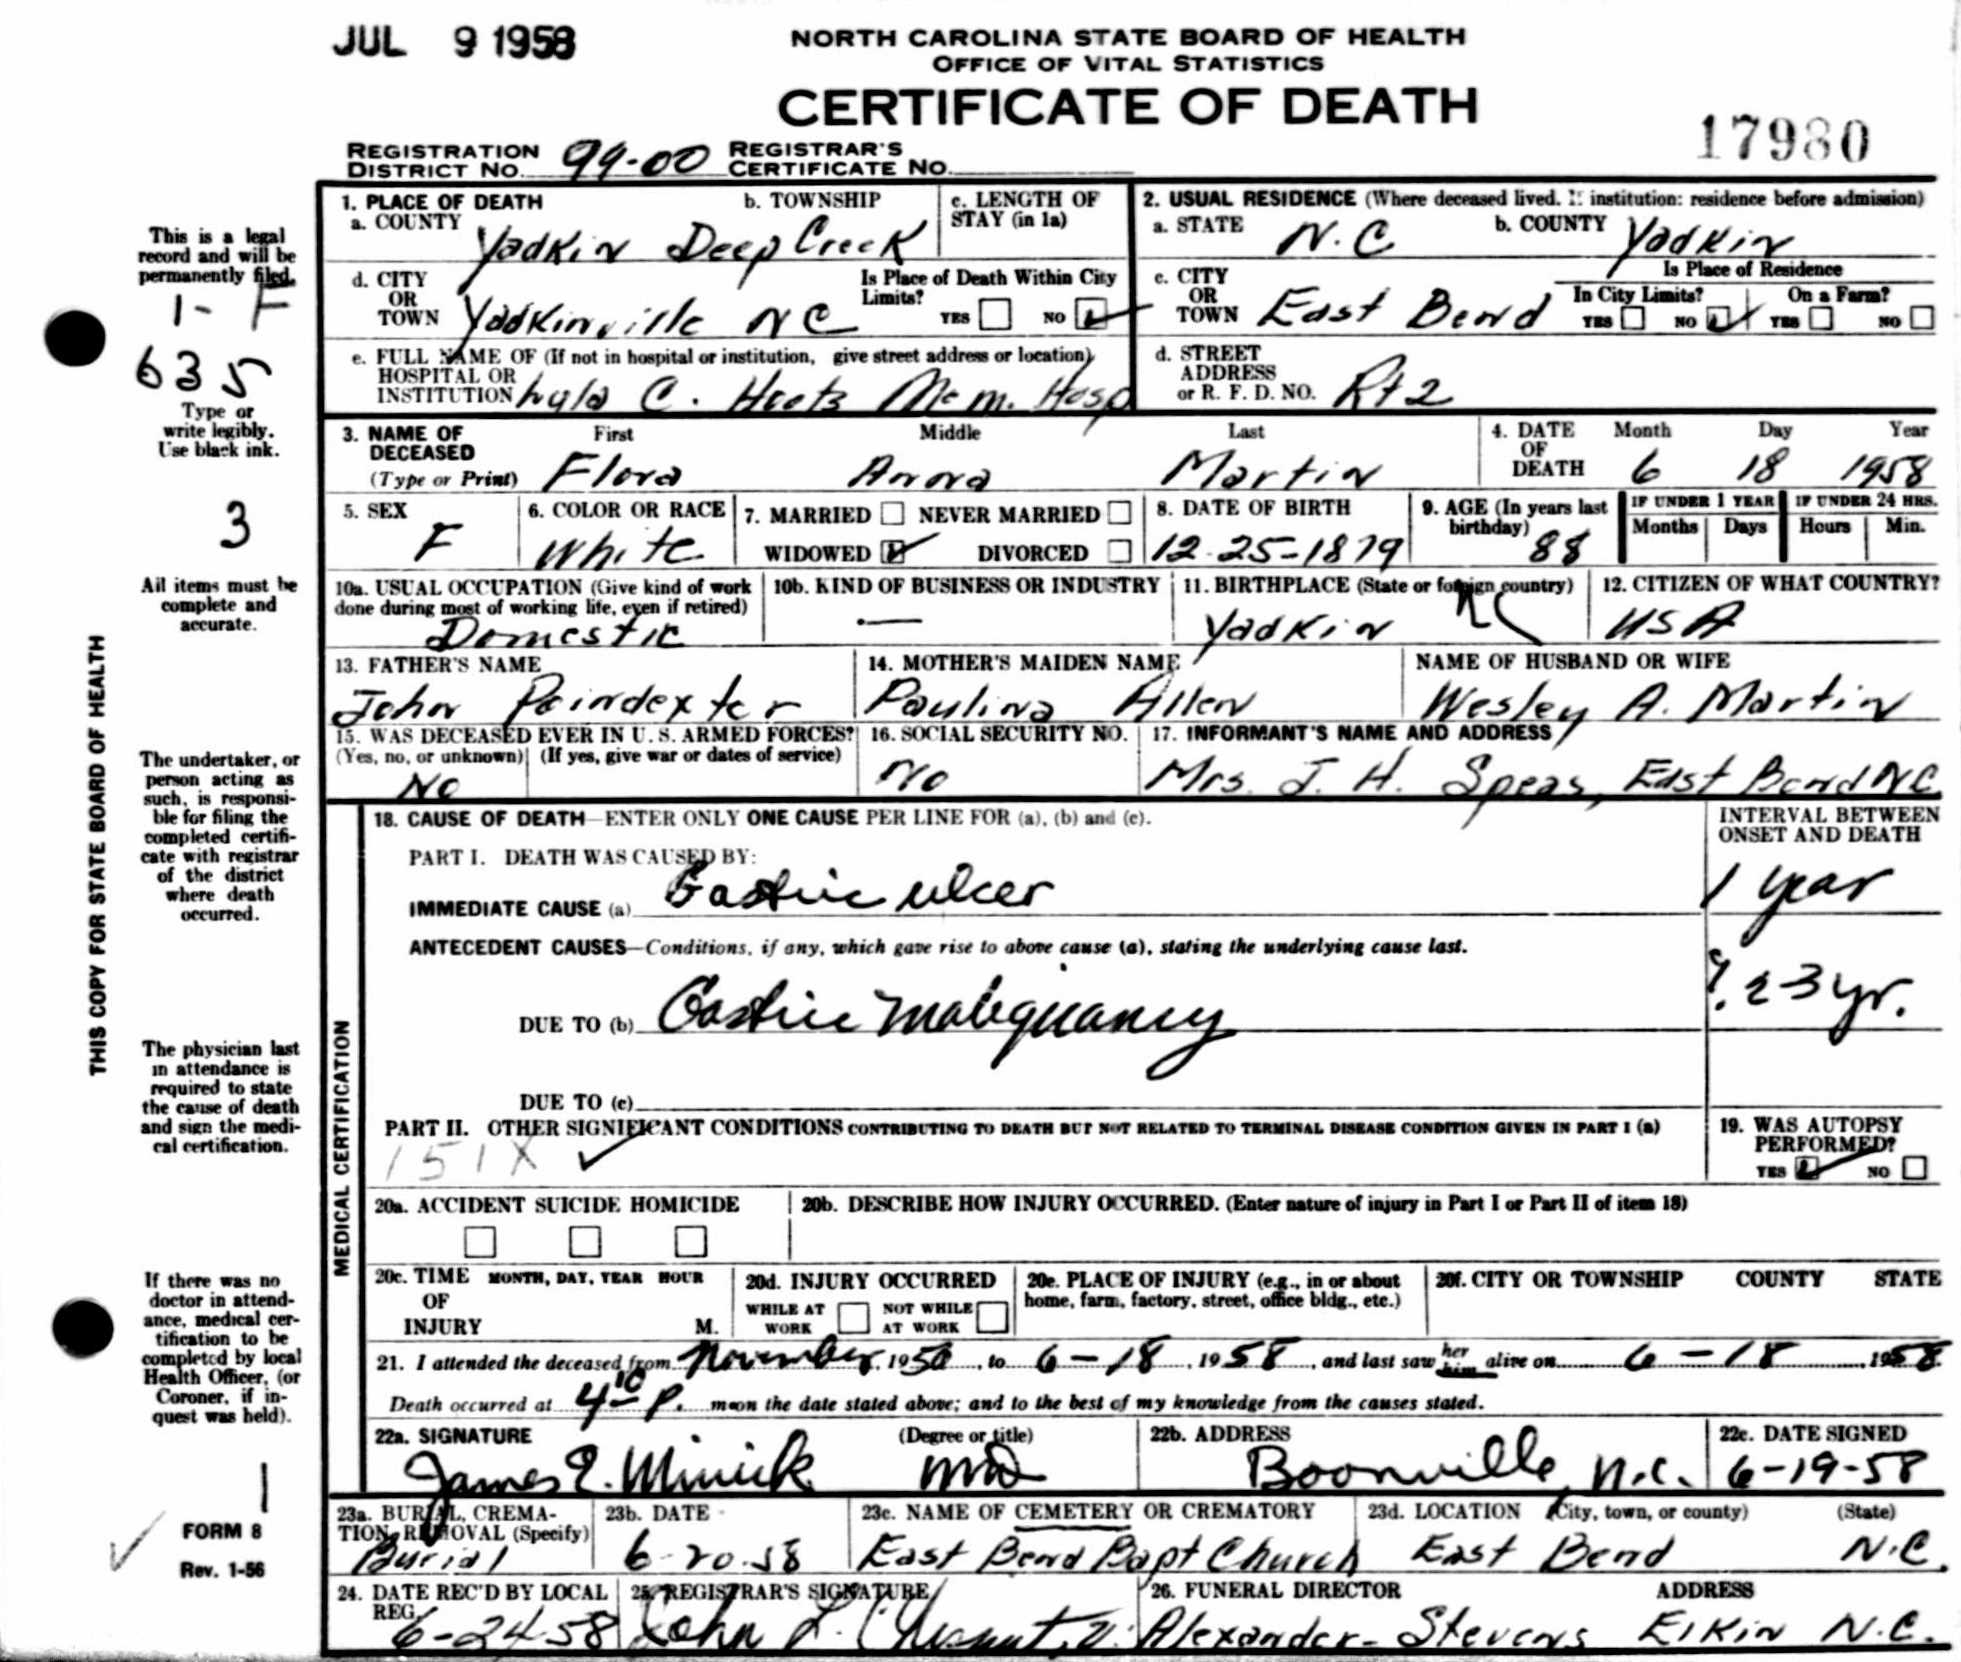 JUL 9 1958
NORTH CAROLINA STATE BOARD OF HEALTH
OFFICE OF VITAL STATISTICS
CERTIFICATE OF DEATH
17980
REGISTRATION DISTRICT NO. 99-00 REGISTRAR'S CERTIFICATE NO.
This is a legal record and will be permanently filed.
1- F
635
Type or write legibly. Use black ink.
3
All items must be complete and accurate.
The undertaker, or person acting as such, is responsible for filing the completed certificate with registrar of the district where death occurred.
The physician last in attendance is required to state the cause of death and sign the medical certification.
If there was no doctor in attendance, medical certification to be completed by local Health Officer, (or Coroner, if inquest was held).
1
FORM 8
Rev. 1-56
THIS COPY FOR STATE BOARD OF HEALTH
1. PLACE OF DEATH
a. COUNTY Yadkin b. TOWNSHIP Deep Creek c. LENGTH OF STAY (in 1a)
2. USUAL RESIDENCE (Where deceased lived. If institution: residence before admission)
a. STATE N.C b. COUNTY Yadkin
d. CITY OR TOWN Yadkinville NC Is Place of Death Within City Limits? YES NO
c. CITY OR TOWN East Bend Is Place of Residence In City Limits? YES NO On a Farm? YES NO
e. FULL NAME OF (If not in hospital or institution, give street address or location) HOSPITAL OR INSTITUTION Lula C. Hoots Mem. Hosp
d. STREET ADDRESS or R. F. D. NO. Rt 2
3. NAME OF DECEASED (Type or Print) First Flora Middle Anna Last Martin
4. DATE OF DEATH Month 6 Day 18 Year 1958
5. SEX F 6. COLOR OR RACE White 7. MARRIED NEVER MARRIED WIDOWED DIVORCED
8. DATE OF BIRTH 12-25-1879 9. AGE (In years last birthday) 88 IF UNDER 1 YEAR Months Days IF UNDER 24 HRS. Hours Min.
10a. USUAL OCCUPATION (Give kind of work done during most of working life, even if retired) Domestic
10b. KIND OF BUSINESS OR INDUSTRY —
11. BIRTHPLACE (State or foreign country) Yadkin NC
12. CITIZEN OF WHAT COUNTRY? USA
13. FATHER'S NAME John Poindexter
14. MOTHER'S MAIDEN NAME Paulina Allen
NAME OF HUSBAND OR WIFE Wesley A. Martin
15. WAS DECEASED EVER IN U. S. ARMED FORCES? (Yes, no, or unknown) (If yes, give war or dates of service) No
16. SOCIAL SECURITY NO. No
17. INFORMANT'S NAME AND ADDRESS Mrs. J. H. Speas, East Bend NC
MEDICAL CERTIFICATION
18. CAUSE OF DEATH—ENTER ONLY ONE CAUSE PER LINE FOR (a), (b) and (c).
INTERVAL BETWEEN ONSET AND DEATH
PART I. DEATH WAS CAUSED BY:
IMMEDIATE CAUSE (a) Gastric ulcer 1 year
ANTECEDENT CAUSES—Conditions, if any, which gave rise to above cause (a), stating the underlying cause last.
DUE TO (b) Gastric malignancy ?. 2-3 yr.
DUE TO (c)
PART II. OTHER SIGNIFICANT CONDITIONS CONTRIBUTING TO DEATH BUT NOT RELATED TO TERMINAL DISEASE CONDITION GIVEN IN PART I (a)
151X
19. WAS AUTOPSY PERFORMED? YES NO
20a. ACCIDENT SUICIDE HOMICIDE
20b. DESCRIBE HOW INJURY OCCURRED. (Enter nature of injury in Part I or Part II of item 18)
20c. TIME OF INJURY MONTH, DAY, YEAR HOUR M.
20d. INJURY OCCURRED WHILE AT WORK NOT WHILE AT WORK
20e. PLACE OF INJURY (e.g., in or about home, farm, factory, street, office bldg., etc.)
20f. CITY OR TOWNSHIP COUNTY STATE
21. I attended the deceased from November, 1950, to 6-18, 1958, and last saw her him alive on 6-18, 1958.
Death occurred at 4 10 P. m on the date stated above; and to the best of my knowledge from the causes stated.
22a. SIGNATURE (Degree or title) James E. Minick MD
22b. ADDRESS Boonville, N.C.
22c. DATE SIGNED 6-19-58
23a. BURIAL, CREMATION, REMOVAL (Specify) Burial
23b. DATE 6-20-58
23c. NAME OF CEMETERY OR CREMATORY East Bend Bapt Church
23d. LOCATION (City, town, or county) (State) East Bend N.C.
24. DATE REC'D BY LOCAL REG. 6-24-58
25. REGISTRAR'S SIGNATURE John L.
26. FUNERAL DIRECTOR ADDRESS Alexander- Stevens Elkin N.C.